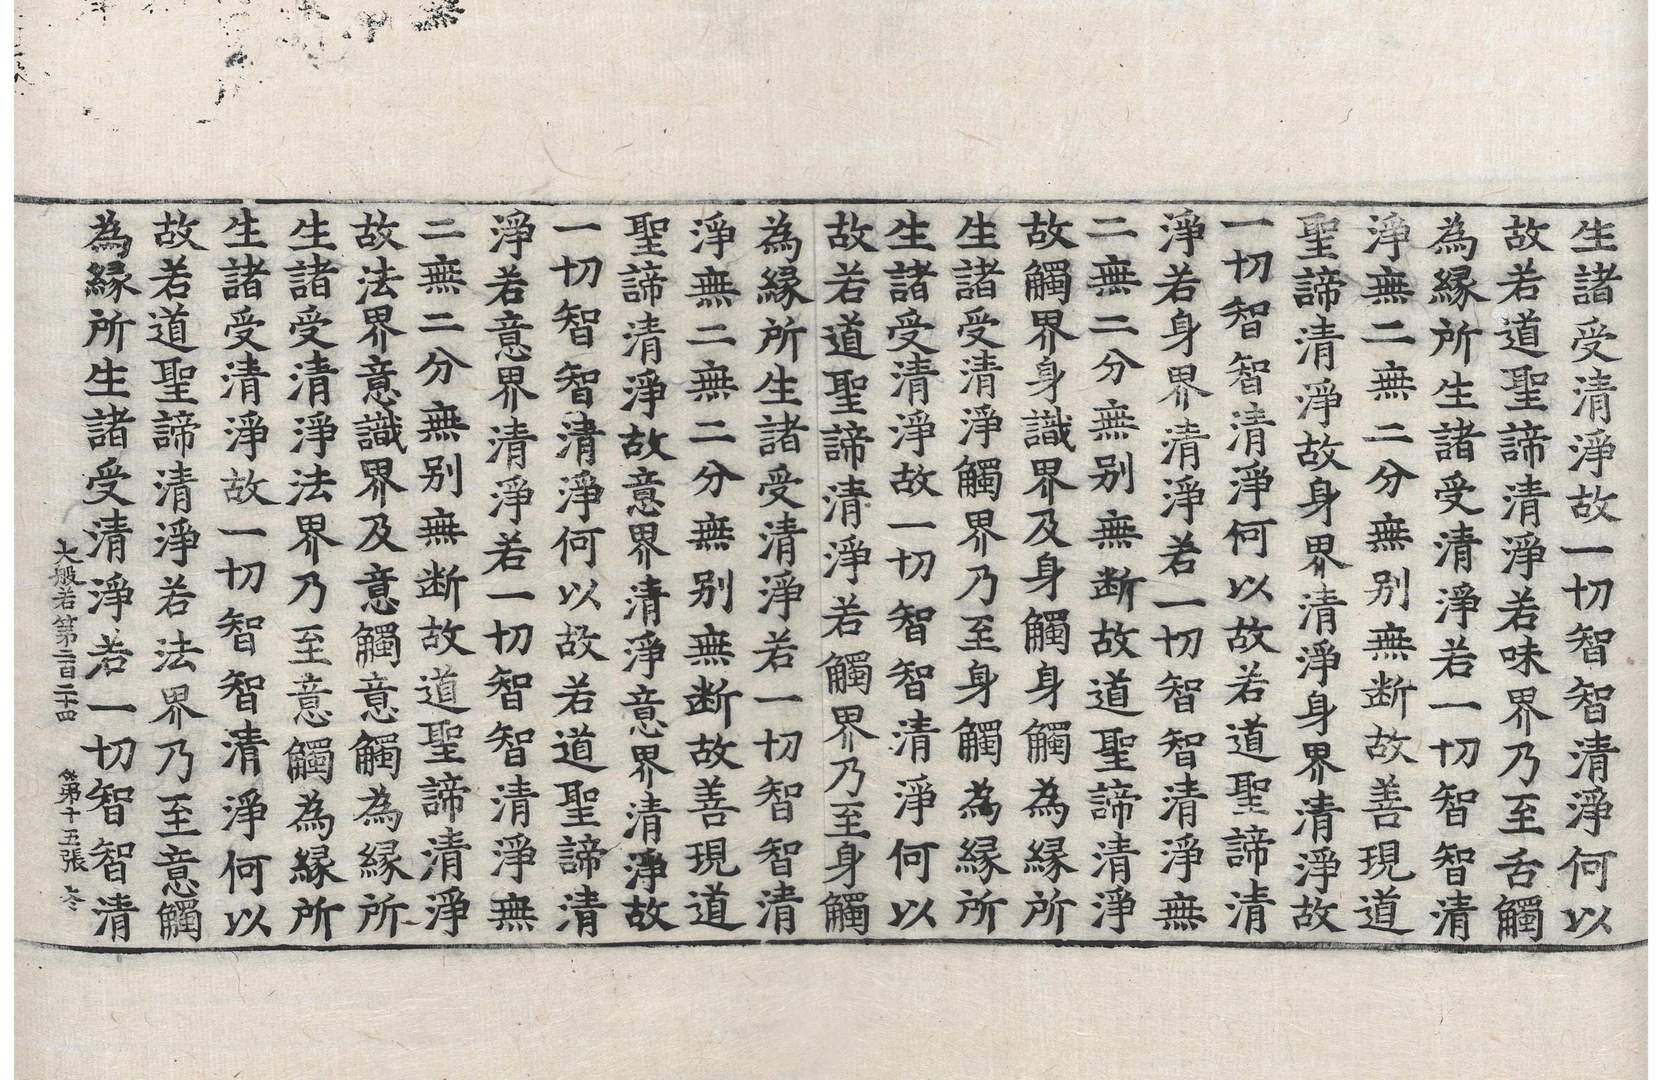 生諸受清淨故一切智智清淨何以
故若道聖諦清淨若味界乃至舌觸
為縁所生諸受清淨若一切智智清
淨無二無二分無别無断故善現道
聖諦清淨故身界清淨身界清淨故
一切智智清淨何以故若道聖諦清
淨若身界清淨若一切智智清淨無
二無二分無别無断故道聖諦清淨
故觸界身識界及身觸身觸為縁所
生諸受清淨觸界乃至身觸為縁所
生諸受清淨故一切智智清淨何以
故若道聖諦清淨若觸界乃至身觸
為縁所生諸受清淨若一切智智清
淨無二無二分無别無断故善現道
聖諦清淨故意界清淨意界清淨故
一切智智清淨何以故若道聖諦清
淨若意界清淨若一切智智清淨無
二無二分無别無断故道聖諦清淨
故法界意識界及意觸意觸為縁所
生諸受清淨法界乃至意觸為縁所
生諸受清淨故一切智智清淨何以
故若道聖諦清淨若法界乃至意觸
為縁所生諸受清淨若一切智智清
大般若第二百二十四 第十五張